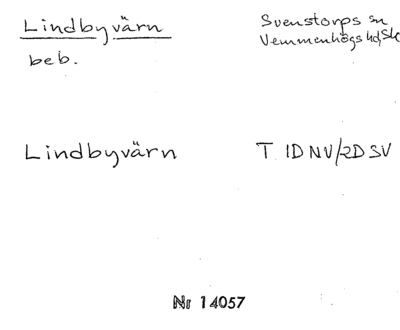 Lindbyvärn
Svenstorps sn
Vemmenhögs hd, Sk
beb.
Lindbyvärn
T 1D NV/2D SV
Nr 14057